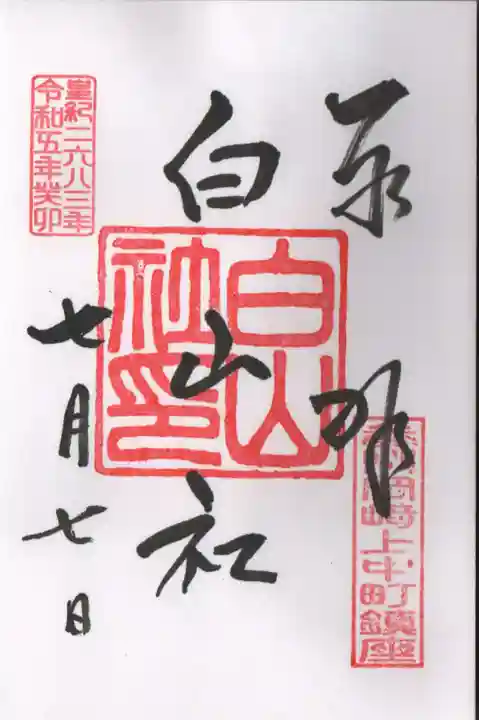 奉拝
白山社
七月七日
皇紀二六八三年
令和五年癸卯
白山
社印